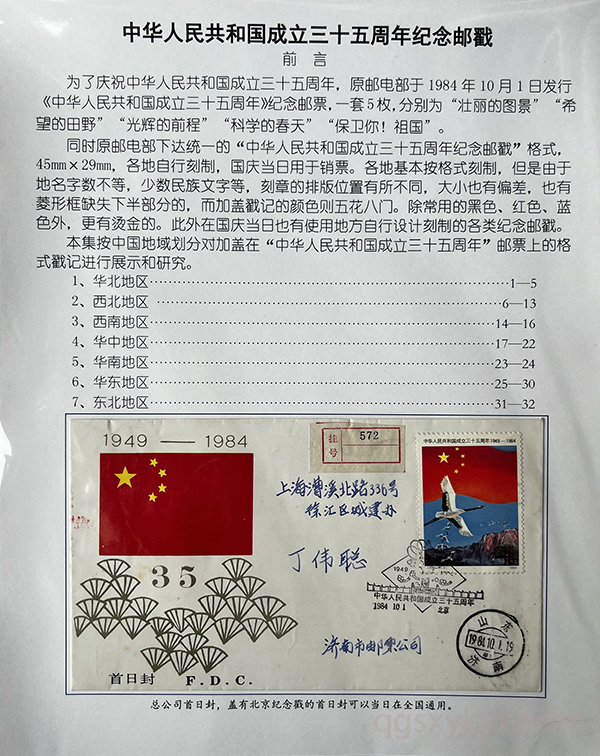 中华人民共和国成立三十五周年纪念邮戳
前 言
为了庆祝中华人民共和国成立三十五周年，原邮电部于1984年10月1日发行
《中华人民共和国成立三十五周年》纪念邮票，一套5枚，分别为“壮丽的图景”“希
望的田野”“光辉的前程”“科学的春天”“保卫你！祖国”。
同时原邮电部下达统一的“中华人民共和国成立三十五周年纪念邮戳”格式，
45mm×29mm，各地自行刻制，国庆当日用于销票。各地基本按格式刻制，但是由于
地名字数不等，少数民族文字等，刻章的排版位置有所不同，大小也有偏差，也有
菱形框缺失下半部分的，而加盖戳记的颜色则五花八门。除常用的黑色、红色、蓝
色外，更有烫金的。此外在国庆当日也有使用地方自行设计刻制的各类纪念邮戳。
本集按中国地域划分对加盖在“中华人民共和国成立三十五周年”邮票上的格
式戳记进行展示和研究。
1、华北地区……1—5
2、西北地区……6—13
3、西南地区……14—16
4、华中地区……17—22
5、华南地区……23—24
6、华东地区……25—30
7、东北地区……31—32
1949 — 1984
挂号 572
中华人民共和国成立三十五周年 1949—1984
上海漕溪北路336号
徐汇区城建办
丁伟聪
35
1949
中华人民共和国成立三十五周年
1984 10 1 北京
山东
1984.10.1.19
济南
济南市邮票公司
首日封 F.D.C.
总公司首日封，盖有北京纪念戳的首日封可以当日在全国通用。